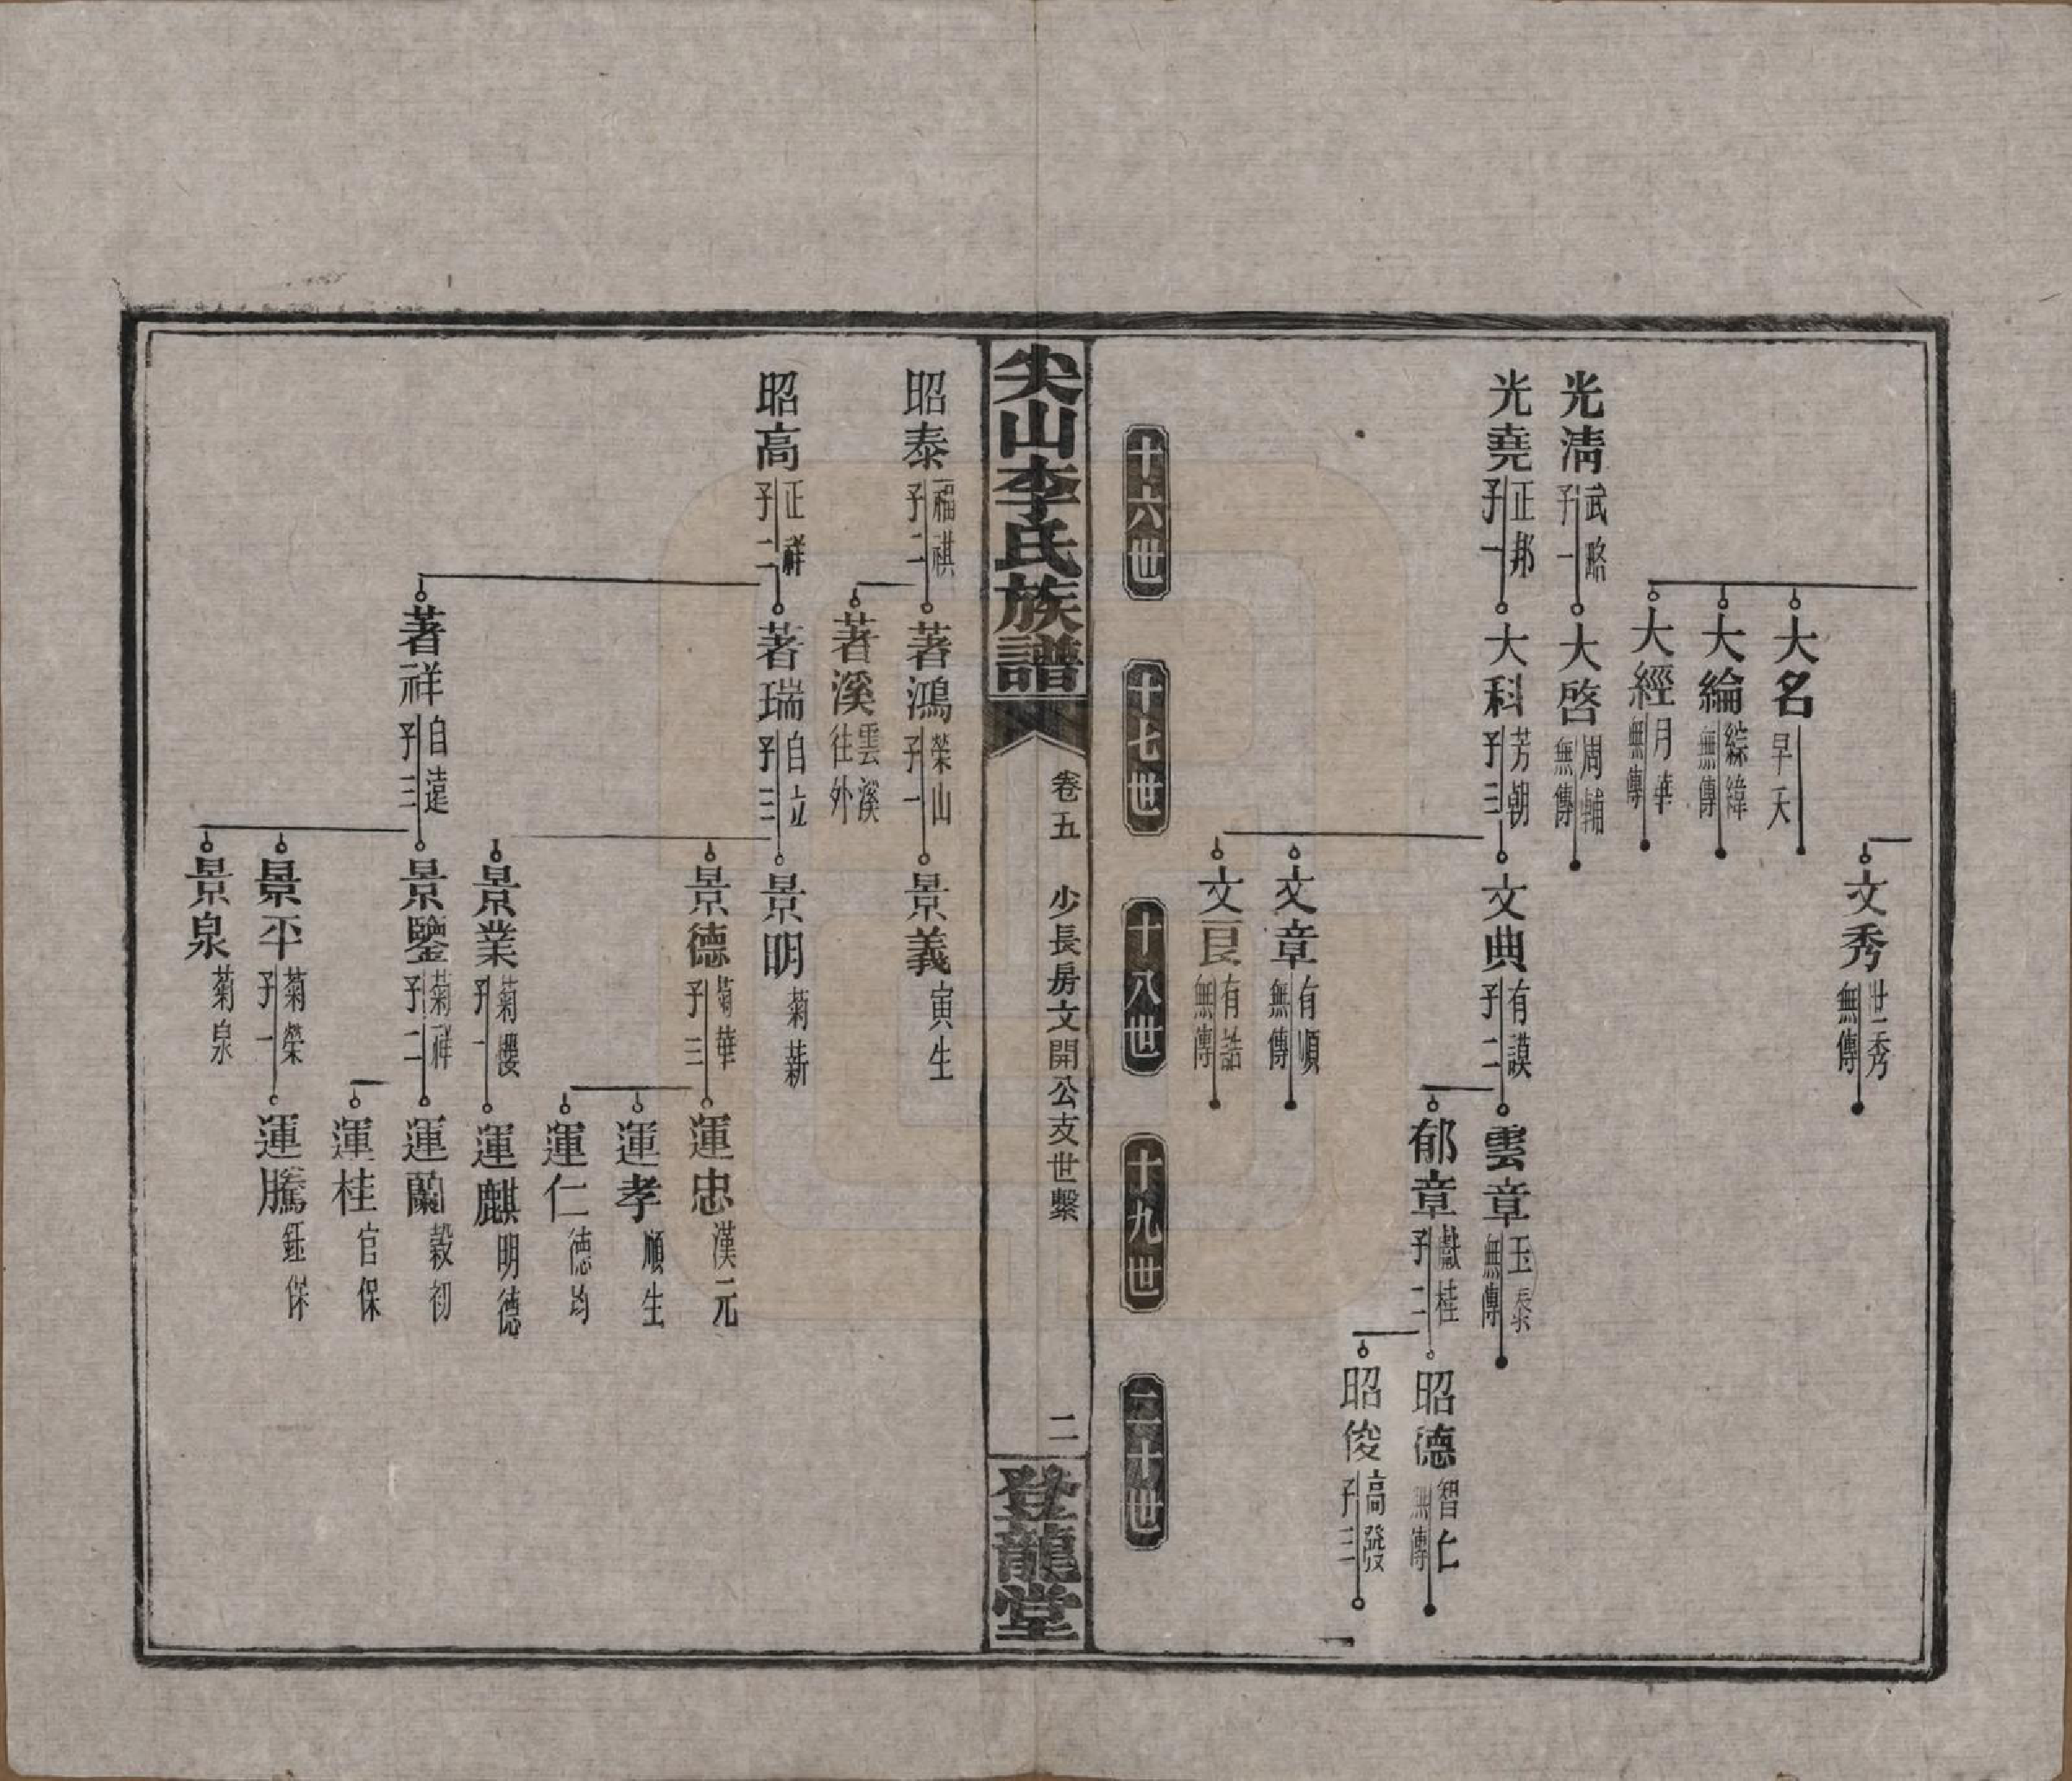 文秀 世秀 無傳
大名 早夭
大綸 綜緯 無傳
大經 月華 無傳
光清 武略 子一
大啓 周輔 無傳
光堯 正邦 子一
大科 芳朝 子三
文典 有謨 子二
雲章 玉泰 無傳
郁章 獻桂 子二
昭德 智仁 無傳
昭俊 高發 子三
文章 有順 無傳
文良 有誥 無傳
十六世
十七世
十八世
十九世
二十世
尖山李氏族譜
卷五 少長房文開公支世繫
二
登龍堂
昭泰 福祺 子二
著鴻 榮山 子一
景義 寅生
著溪 雲溪 往外
昭高 正祥 子二
著瑞 自立 子三
景明 菊薪
景德 菊華 子三
運忠 漢元
運孝 順生
運仁 德均
景業 菊樱 子一
運麒 明德
著祥 自遠 子三
景鑒 菊祥 子二
運蘭 穀初
運桂 官保
景平 菊榮 子一
運騰 鈺保
景泉 菊泉